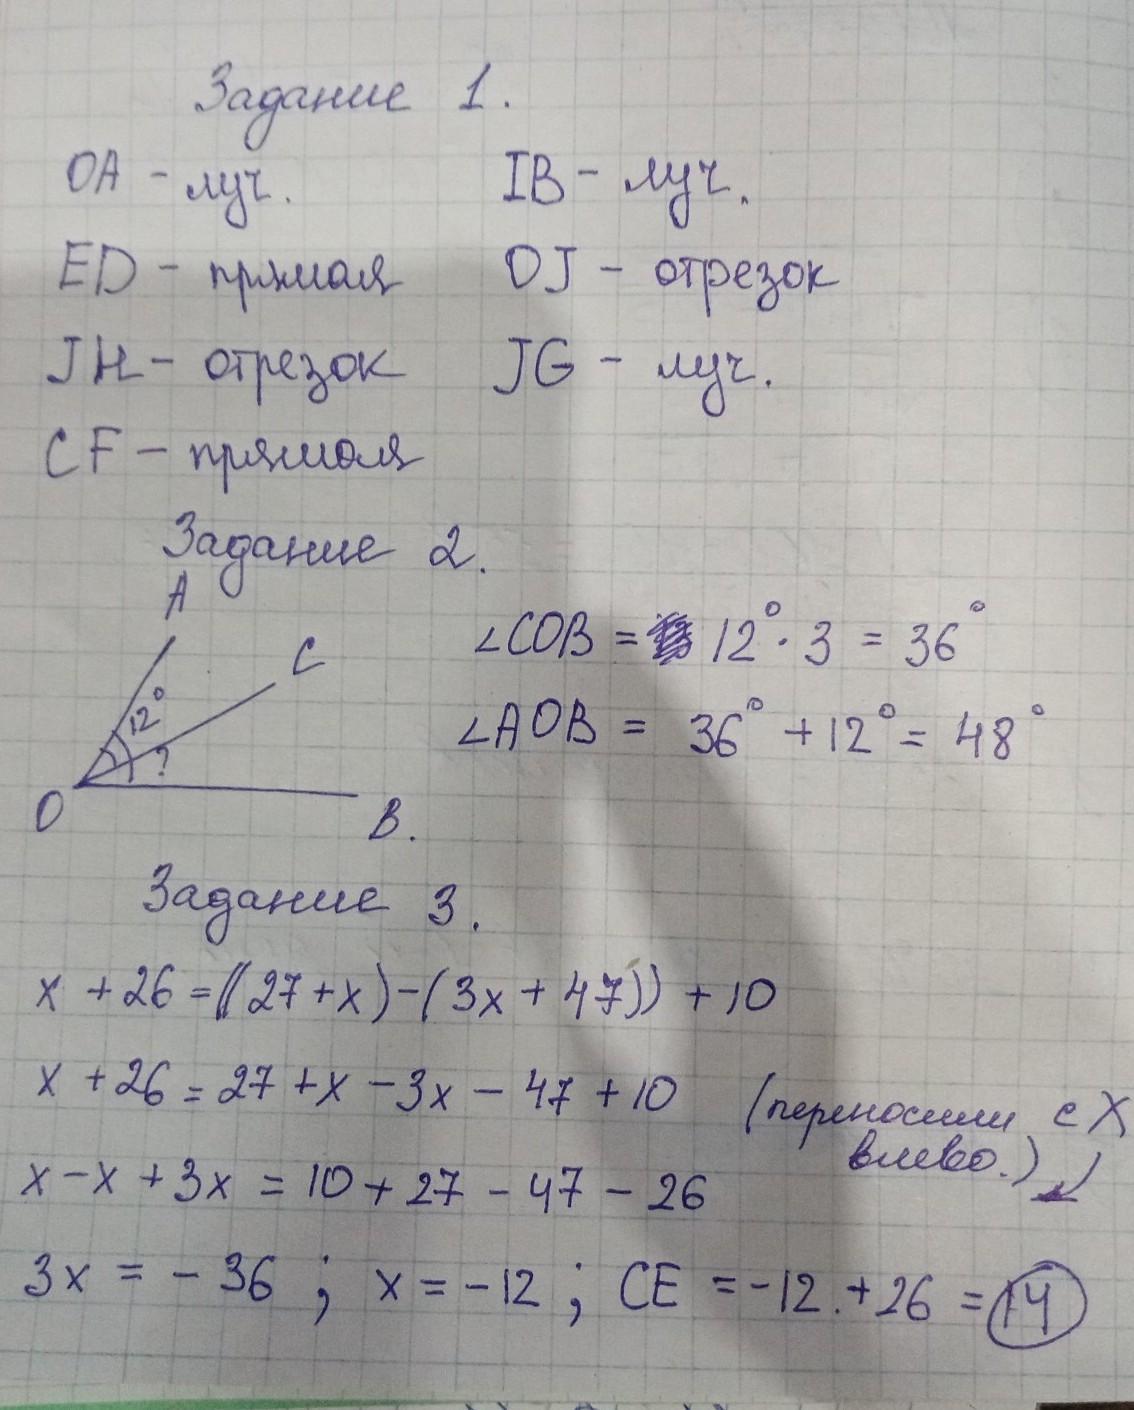 Задание 1.
OA - луч.
IB - луч.
ED - прямая
OJ - отрезок
JH - отрезок
JG - луч.
CF - прямая
Задание 2.
A
C
12°
?
O
B.
∠COB = 12° · 3 = 36°
∠AOB = 36° + 12° = 48°
Задание 3.
x + 26 = ((27 + x) - (3x + 47)) + 10
x + 26 = 27 + x - 3x - 47 + 10
(переносим с X
влево.)
x - x + 3x = 10 + 27 - 47 - 26
3x = - 36 ; x = -12 ; CE = -12 + 26 = 14